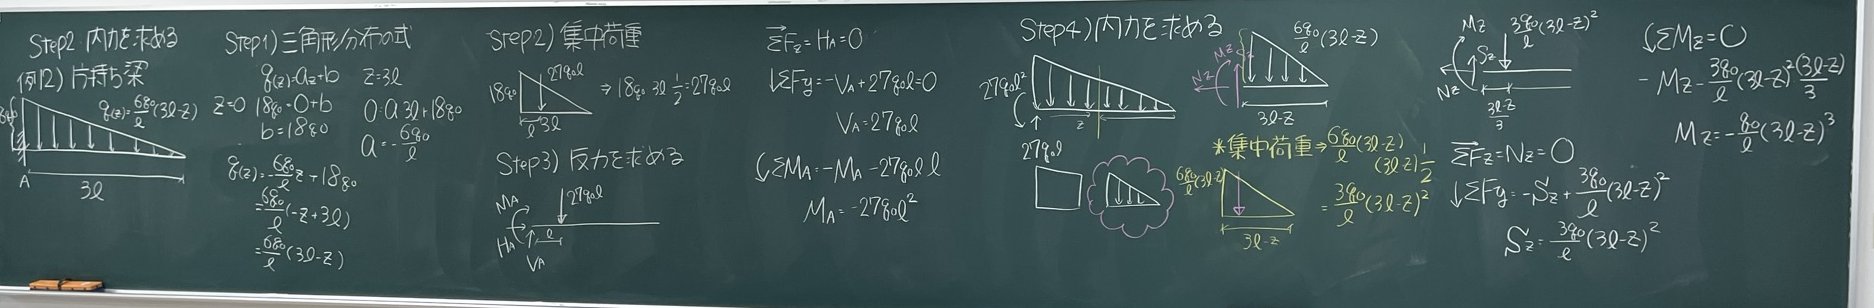 Step2. 内力を求める
例12) 片持ち梁
q(z)=6q₀/l(3l-z)
A
3l
Step1) 三角形分布の式
q(z)=az+b z=3l
z=0 18q₀=0+b 0=a3l+18q₀
b=18q₀ a=-6q₀/l
q(z)=-6q₀/l z+18q₀
=6q₀/l(-z+3l)
=6q₀/l(3l-z)
Step2) 集中荷重
27q₀l
18q₀ ⇒18q₀ 3l 1/2=27q₀l
l 3l
Step3) 反力を求める
MA 27q₀l
HA l
VA
→ΣFz=HA=0
↓ΣFy=-VA+27q₀l=0
VA=27q₀l
ΣMA=-MA-27q₀l l
MA=-27q₀l²
Step4) 内力を求める
27q₀l²
z
27q₀l
6q₀/l(3l-z)
Mz
Sz
Nz
3l-z
*集中荷重⇒6q₀/l(3l-z)
(3l-z)1/2
6q₀/l(3l-z)
=3q₀/l(3l-z)²
3l-z
Mz 3q₀/l(3l-z)²
Sz
Nz
3l-z/3
→ΣFz=Nz=0
↓ΣFy=-Sz+3q₀/l(3l-z)²
Sz=3q₀/l(3l-z)²
ΣMz=0
-Mz-3q₀/l(3l-z)²(3l-z)/3
Mz=-q₀/l(3l-z)³